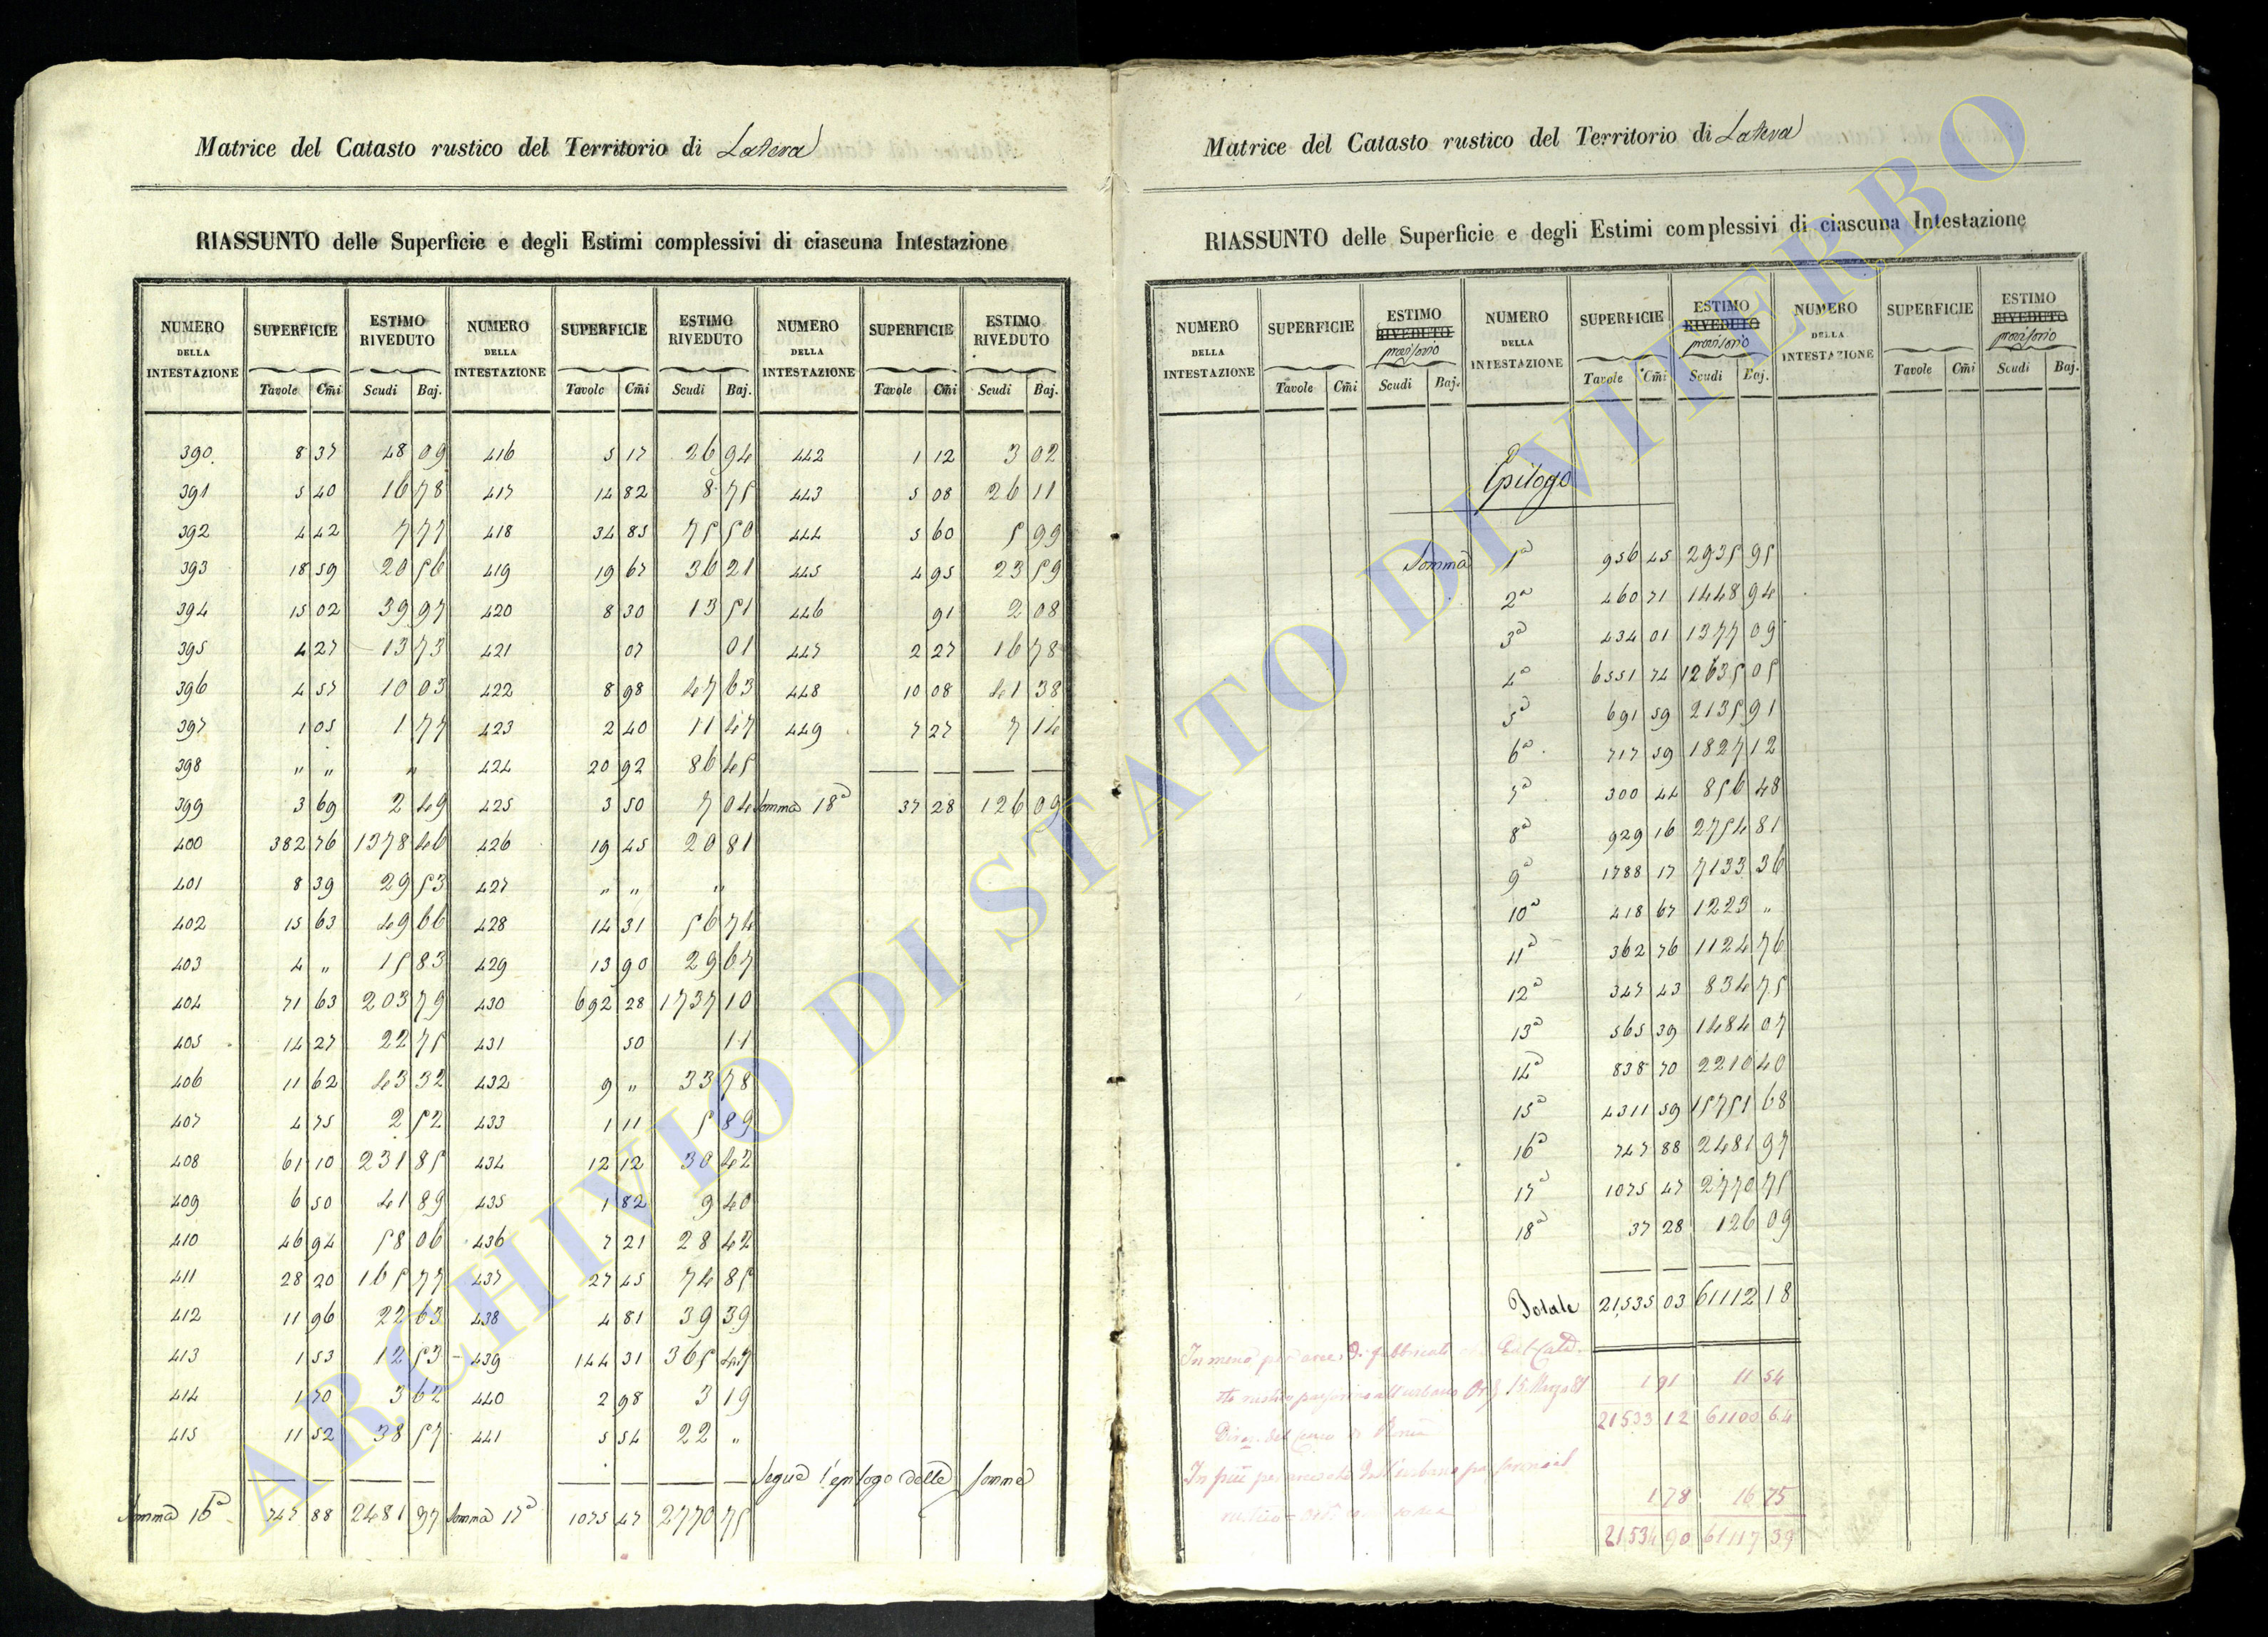 Matrice del Catasto rustico del Territorio di Latera
RIASSUNTO delle Superficie e degli Estimi complessivi di ciascuna Intestazione
NUMERO DELLA INTESTAZIONE SUPERFICIE ESTIMO RIVEDUTO NUMERO DELLA INTESTAZIONE SUPERFICIE ESTIMO RIVEDUTO NUMERO DELLA INTESTAZIONE SUPERFICIE ESTIMO RIVEDUTO
Tavole Cm̃i Scudi Baj. Tavole Cm̃i Scudi Baj. Tavole Cm̃i Scudi Baj.
390 8 37 48 09 416 5 17 26 94 442 1 12 3 02
391 5 40 16 78 417 14 82 8 75 443 5 08 26 11
392 4 42 7 77 418 34 85 75 50 444 5 60 5 99
393 18 59 20 56 419 19 67 36 21 445 4 95 23 59
394 15 02 39 97 420 8 30 13 51 446 91 2 08
395 4 27 13 73 421 07 01 447 2 27 16 78
396 4 57 10 03 422 8 98 47 63 448 10 08 41 38
397 1 05 1 77 423 2 40 11 47 449 7 27 7 14
398 " " " 424 20 92 86 45
399 3 69 2 49 425 3 50 7 04 Somma 18a 37 28 126 09
400 382 76 1378 46 426 19 45 20 81
401 8 39 29 53 427 " " "
402 15 63 49 66 428 14 31 56 74
403 4 " 15 83 429 13 90 29 67
404 71 63 203 79 430 692 28 1737 10
405 14 27 22 75 431 50 11
406 11 62 43 32 432 9 " 33 78
407 4 75 2 52 433 1 11 5 89
408 61 10 231 85 434 12 12 30 42
409 6 50 41 89 435 1 82 9 40
410 46 94 58 06 436 7 21 28 42
411 28 20 165 77 437 27 45 74 85
412 11 96 22 63 438 4 81 39 39
413 1 53 12 53 439 144 31 365 47
414 1 70 3 62 440 2 98 3 19
415 11 52 38 57 441 5 54 22 "
Segue l'epilogo delle somme
Somma 16a 747 88 2481 97 Somma 17a 1075 47 2770 75
Matrice del Catasto rustico del Territorio di Latera
RIASSUNTO delle Superficie e degli Estimi complessivi di ciascuna Intestazione
NUMERO DELLA INTESTAZIONE SUPERFICIE ESTIMO RIVEDUTO provisorio NUMERO DELLA INTESTAZIONE SUPERFICIE ESTIMO RIVEDUTO provisorio NUMERO DELLA INTESTAZIONE SUPERFICIE ESTIMO RIVEDUTO provisorio
Tavole Cm̃i Scudi Baj. Tavole Cm̃i Scudi Baj. Tavole Cm̃i Scudi Baj.
Epilogo
Somma 1a 956 45 2935 95
2a 460 71 1448 94
3a 434 01 1377 09
4a 6551 74 12635 05
5a 691 59 2135 91
6a 717 59 1827 12
7a 300 44 856 48
8a 929 16 2754 81
9a 1788 17 7133 36
10a 418 67 1223 "
11a 362 76 1124 76
12a 347 43 834 75
13a 565 39 1484 07
14a 838 70 2210 40
15a 4311 59 15751 68
16a 747 88 2481 97
17a 1075 47 2770 75
18a 37 28 126 09
Totale 21535 03 61112 18
In meno per aree di fabbricati dal Cat.
rustico all'urbano 15 Marzo 1 91 11 54
21533 12 61100 64
In più per dall'urbano
1 78 16 75
21534 90 61117 39
ARCHIVIO DI STATO DI VITERBO